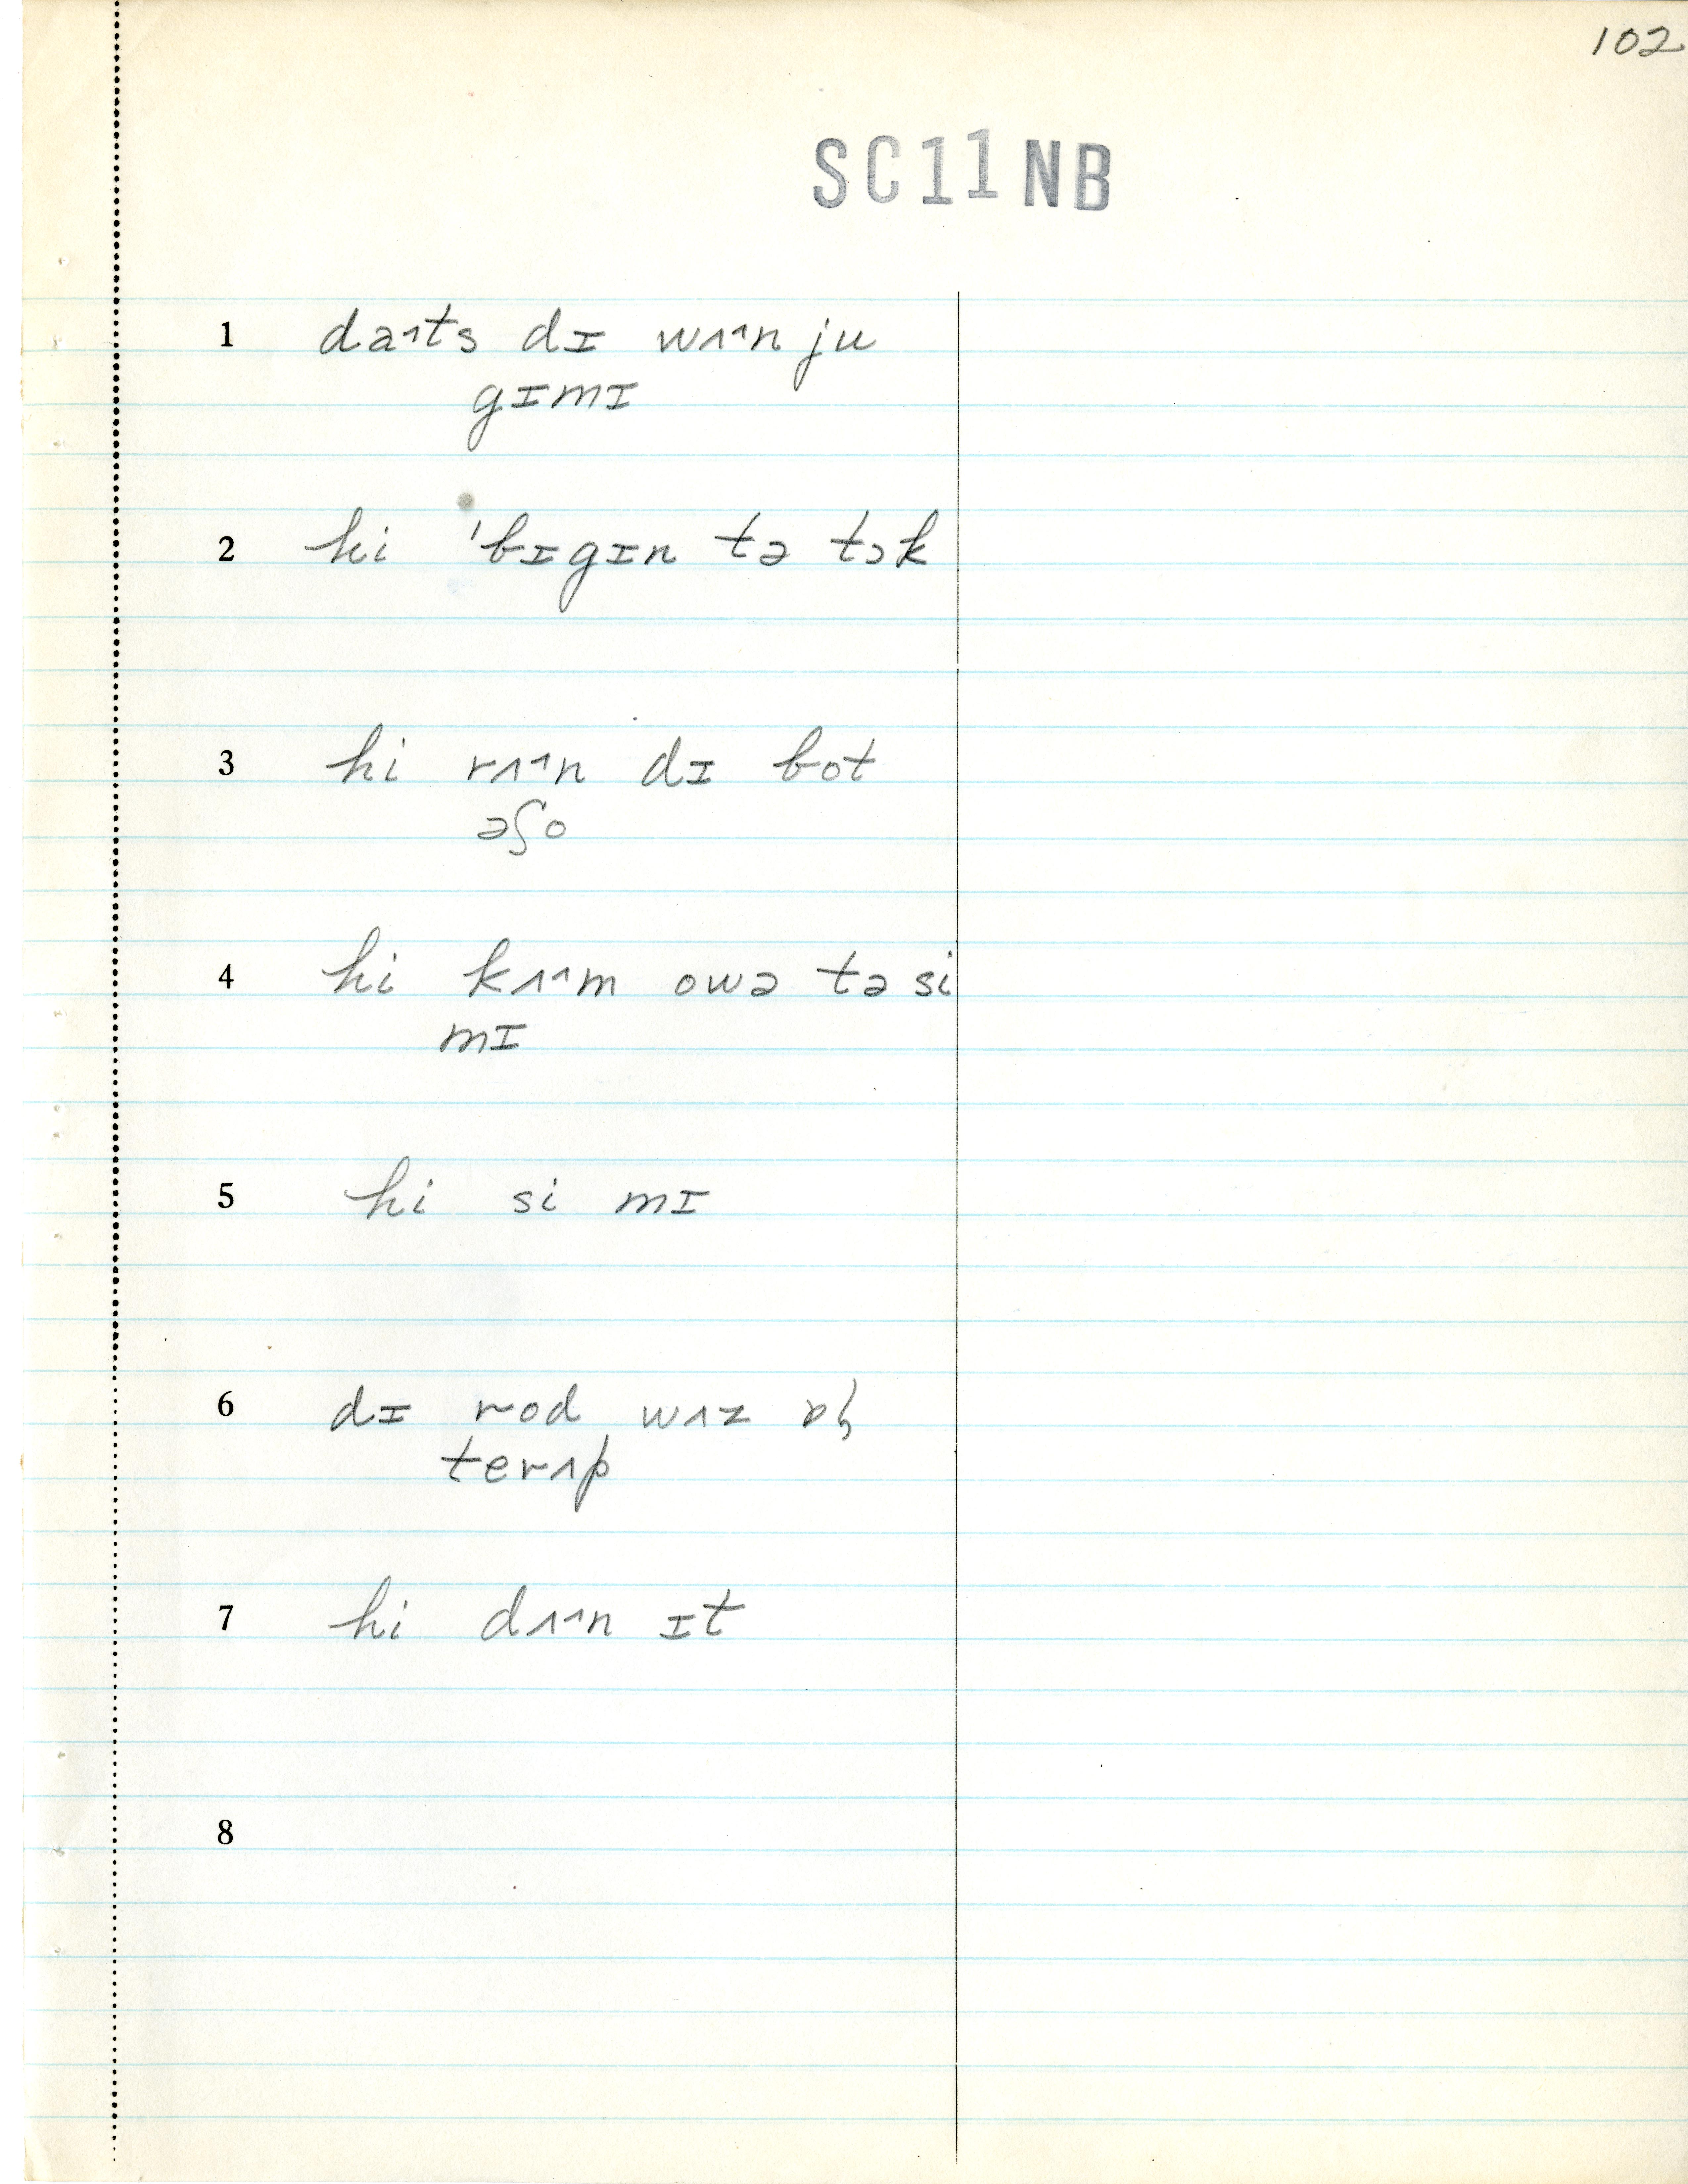 102
SC11NB
1 daʌts dɪ wʌʌn ju
gɪmɪ
2 hi 'bɪgɪn tə tɔk
3 hi rʌʌn dɪ bot
əʃo
4 hi kʌʌm owə tə si
mɪ
5 hi si mɪ
6 dɪ rod wʌz
terʌp
7 hi dʌʌn ɪt
8